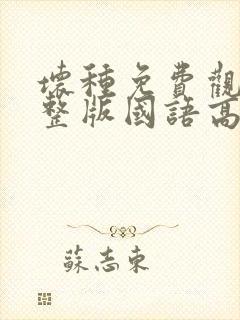 壞種免費觀
整版國語高
蘇志東